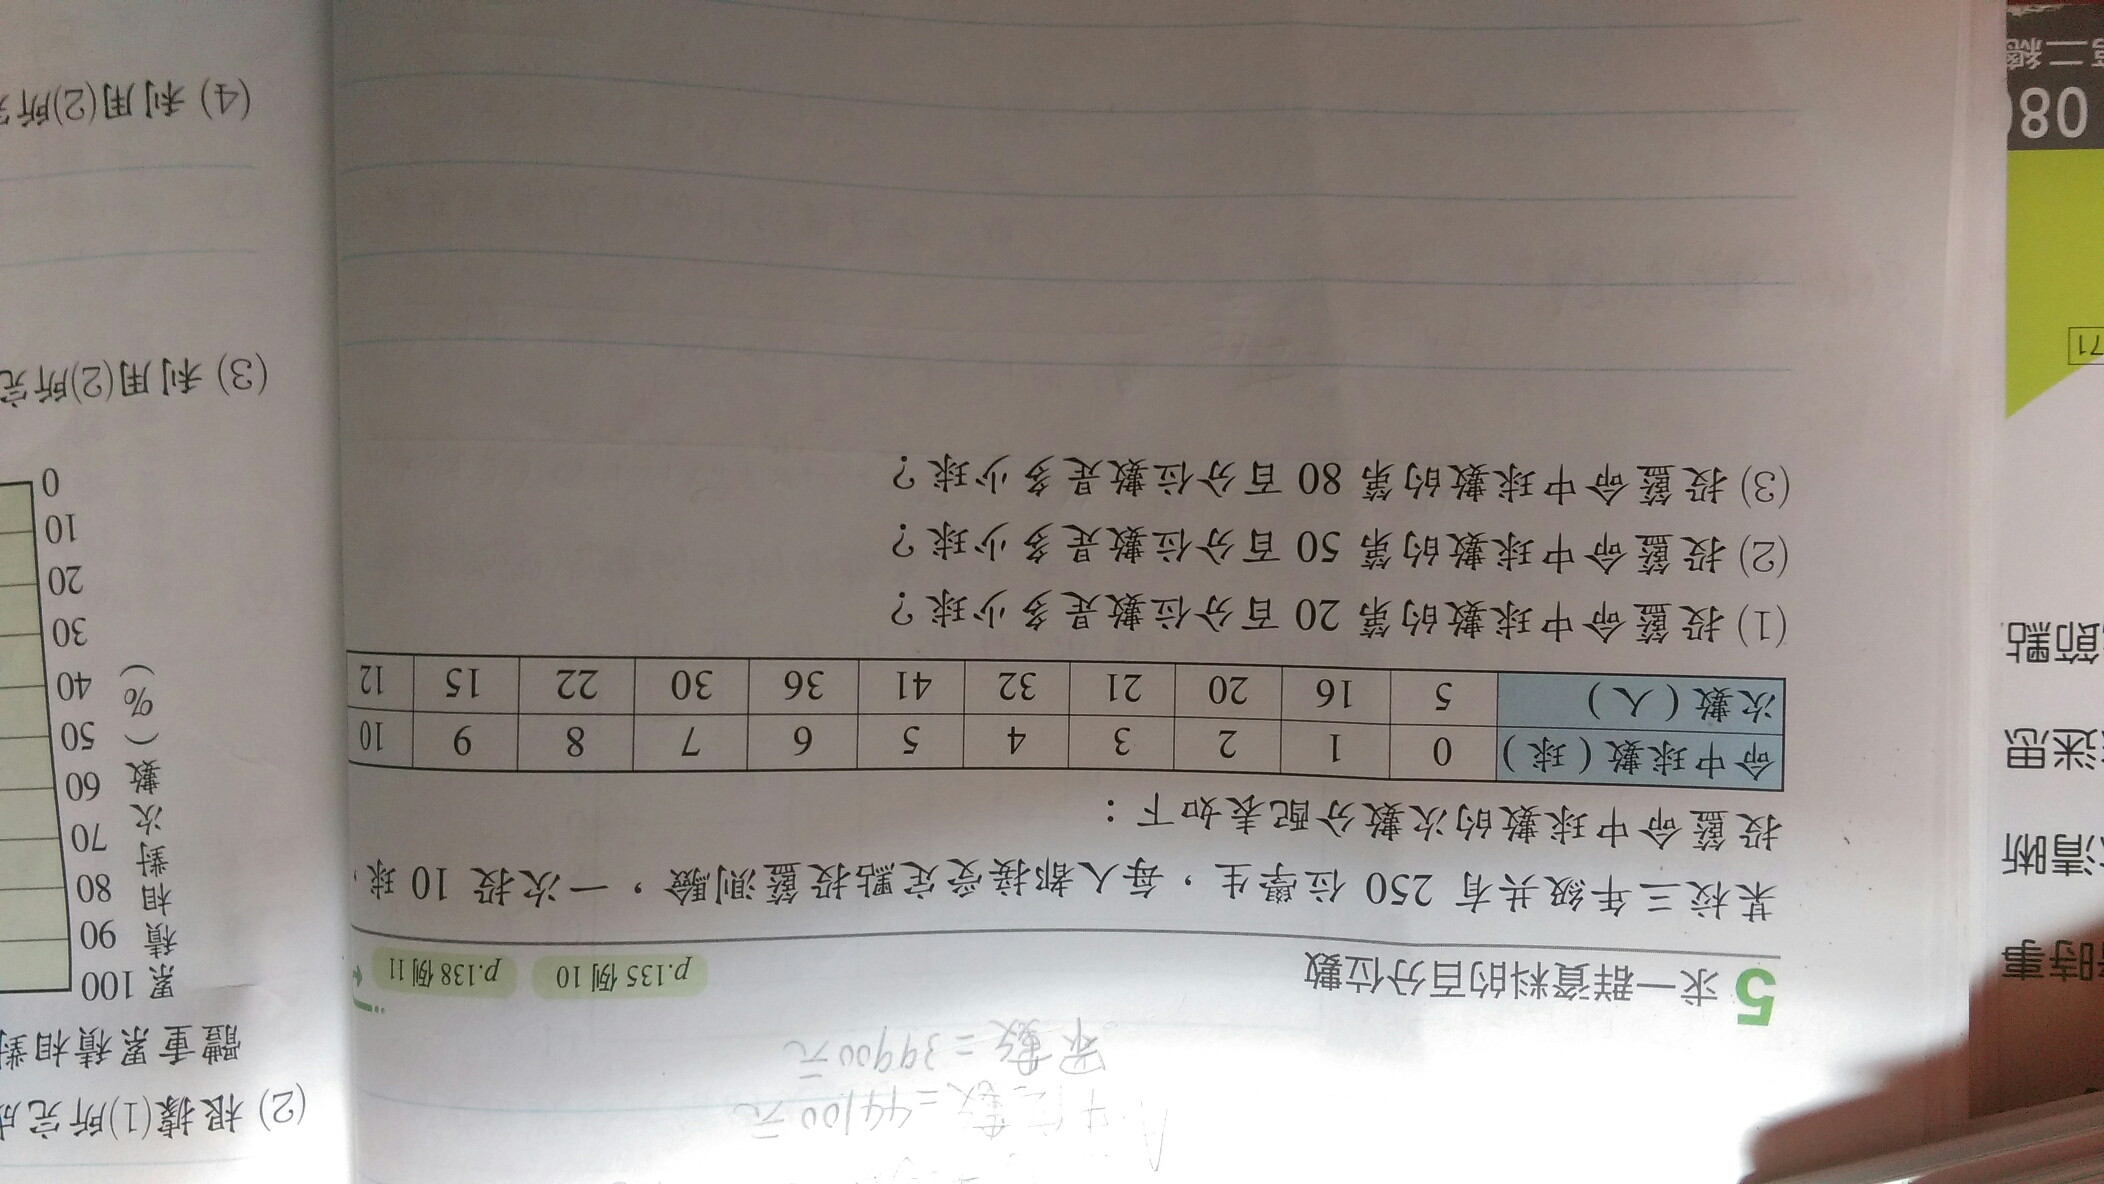 中位數=44100元
眾數=39900元
5 求一群資料的百分位數 p.135 例10 p.138 例11
某校三年級共有 250 位學生，每人都接受定點投籃測驗，一次投 10 球，
投籃命中球數的次數分配表如下：
命中球數（球） 0 1 2 3 4 5 6 7 8 9 10
次數（人） 5 16 20 21 32 41 36 30 22 15 12
(1) 投籃命中球數的第 20 百分位數是多少球？
(2) 投籃命中球數的第 50 百分位數是多少球？
(3) 投籃命中球數的第 80 百分位數是多少球？
(2) 根據(1)所完成
體重累積相對
累積相對次數（%）
100
90
80
70
60
50
40
30
20
10
0
(3) 利用(2)所完
(4) 利用(2)所完
時事
清晰
迷思
節點
71
080
第二總